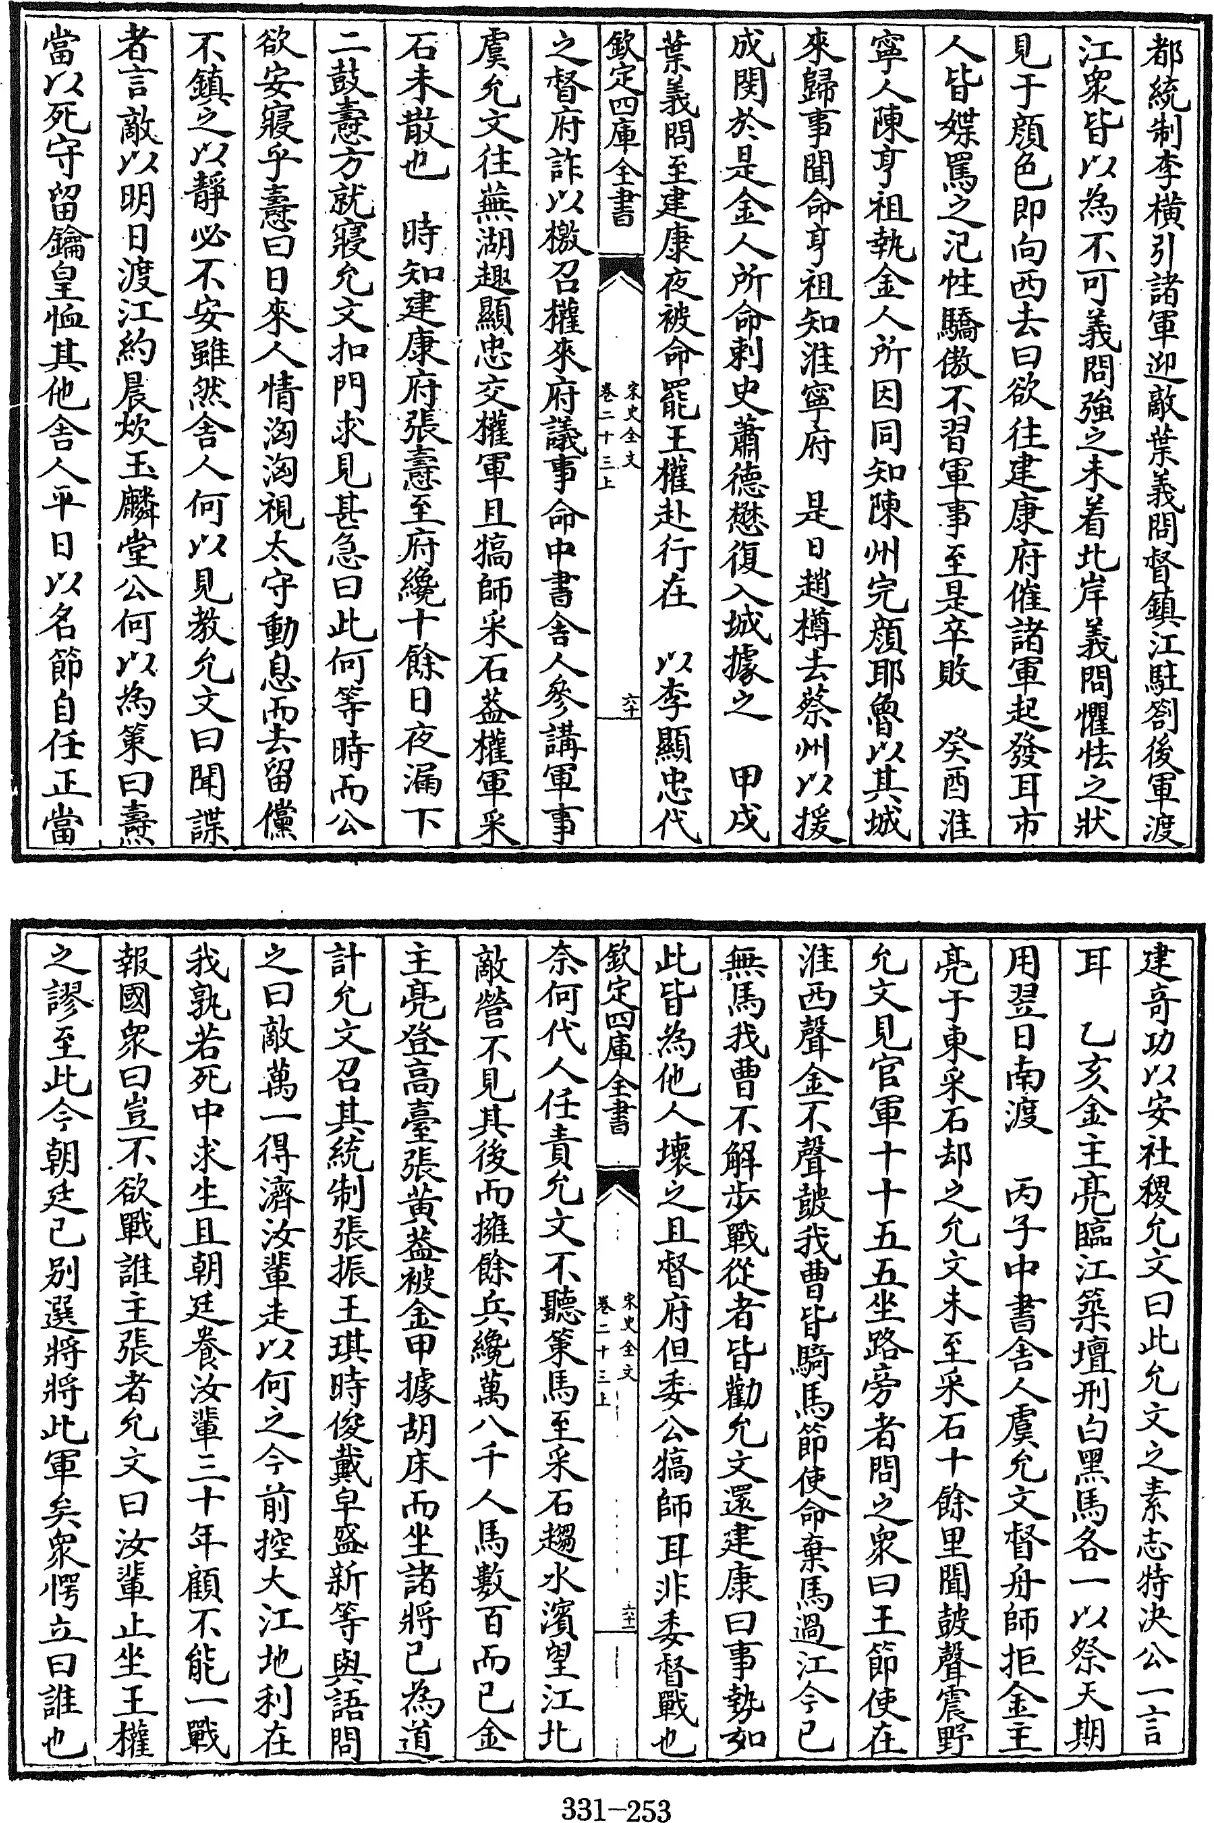 都統制李橫引諸軍迎敵葉義問督鎮江駐劄後軍渡
江衆皆以為不可義問強之未着北岸義問懼怯之狀
見于顔色即向西去曰欲往建康府催諸軍起發耳市
人皆媟罵之汜性驕傲不習軍事至是卒敗　癸酉淮
寧人陳亨祖執金人所因同知陳州完顔耶魯以其城
來歸事聞命亨祖知淮寧府　是日趙樽去蔡州以援
成閔於是金人所命刺史蕭德懋復入城據之　甲戌
葉義問至建康夜被命罷王權赴行在　以李顯忠代
欽定四庫全書　宋史全文　卷二十三上　六十
之督府詐以檄召權來府議事命中書舎人參講軍事
虞允文往蕪湖趣顯忠交權軍且犒師采石葢權軍采
石未散也　時知建康府張燾至府纔十餘日夜漏下
二鼓燾方就寢允文扣門求見甚急曰此何等時而公
欲安寢乎燾曰日來人情洶洶視太守動息而去留儻
不鎮之以靜必不安雖然舎人何以見教允文曰聞諜
者言敵以明日渡江約晨炊玉麟堂公何以為策曰燾
當以死守留鑰皇恤其他舎人平日以名節自任正當
建奇功以安社稷允文曰此允文之素志特决公一言
耳　乙亥金主亮臨江築壇刑白黑馬各一以祭天期
用翌日南渡　丙子中書舎人虞允文督舟師拒金主
亮于東采石却之允文未至采石十餘里聞鼓聲震野
允文見官軍十十五五坐路旁者問之衆曰王節使在
淮西聲金不聲鼓我曹皆騎馬節使命棄馬過江今已
無馬我曹不解步戰從者皆勸允文還建康曰事勢如
此皆為他人壞之且督府但委公犒師耳非委督戰也
欽定四庫全書　宋史全文　卷二十三上　六十一
奈何代人任責允文不聽策馬至采石趨水濱望江北
敵營不見其後而擁餘兵纔萬八千人馬數百而已金
主亮登高臺張黄葢被金甲據胡床而坐諸將已為遁
計允文召其統制張振王琪時俊戴皋盛新等與語問
之曰敵萬一得濟汝輩走以何之今前控大江地利在
我孰若死中求生且朝廷養汝輩三十年顧不能一戰
報國衆曰豈不欲戰誰主張者允文曰汝輩止坐王權
之謬至此今朝廷已别選將將此軍矣衆愕立曰誰也
331-253